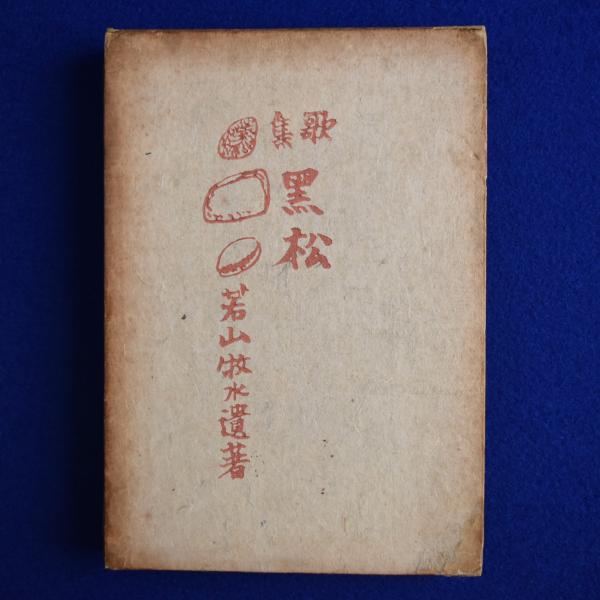 歌集
黑松
若山牧水遺著